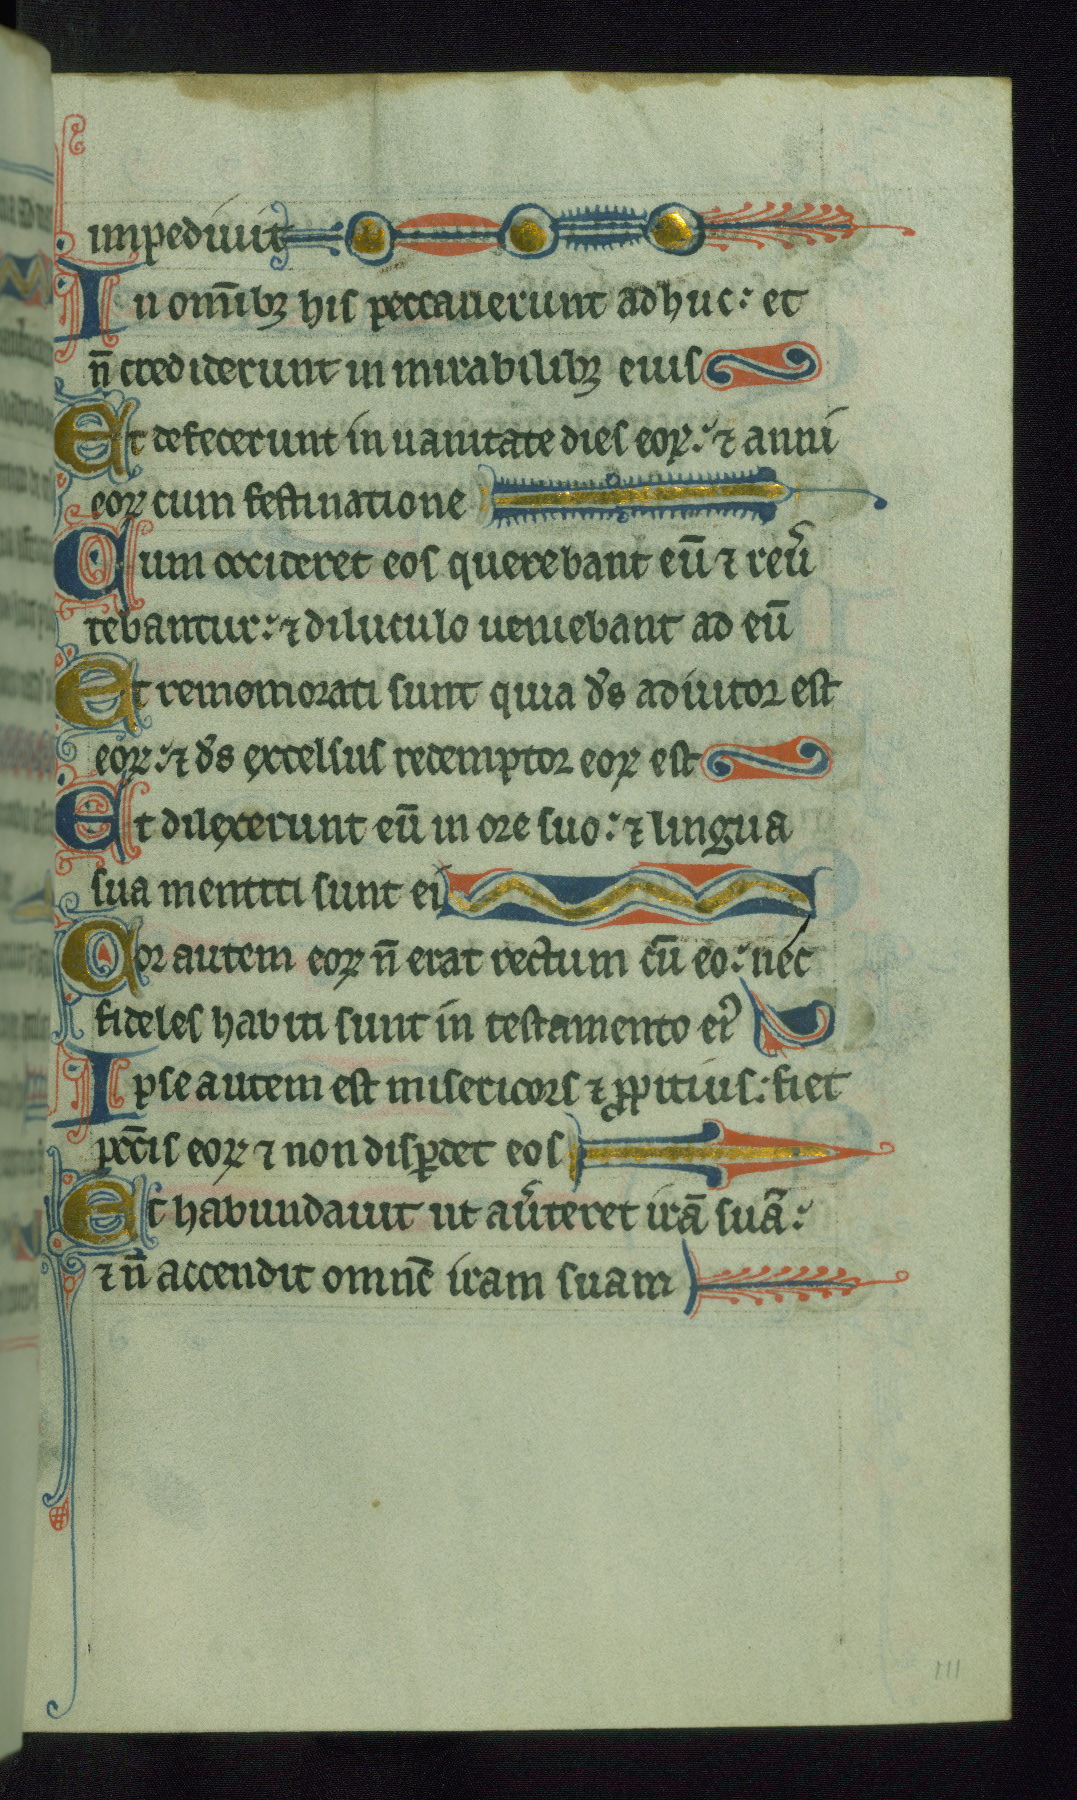 impediuit
In om̄ibꝫ his peccauerunt adhuc: et
n̄ crediderunt in mirabilibꝫ eius
Et defecerunt in uanitate dies eoꝝ: ⁊ anni
eoꝝ cum festinatione
Cum occideret eos querebant eū ⁊ reu̓
tebantur: ⁊ diluculo ueniebant ad eū
Et rememorati sunt quia d̄s adiutor est
eoꝝ: ⁊ d̄s excelsus redemptor eoꝝ est
Et dilexerunt eū in ore suo: ⁊ lingua
sua mentiti sunt ei
Cor autem eoꝝ n̄ erat rectum cū eo: nec
fideles habiti sunt in testamento ei᾽
Ipse autem est misericors ⁊ ꝓpitius: fiet
pcc̄is eoꝝ ⁊ non disꝑdet eos
Et habundauit ut au̓teret irā suā:
⁊ n̄ accendit omnē iram suam
111